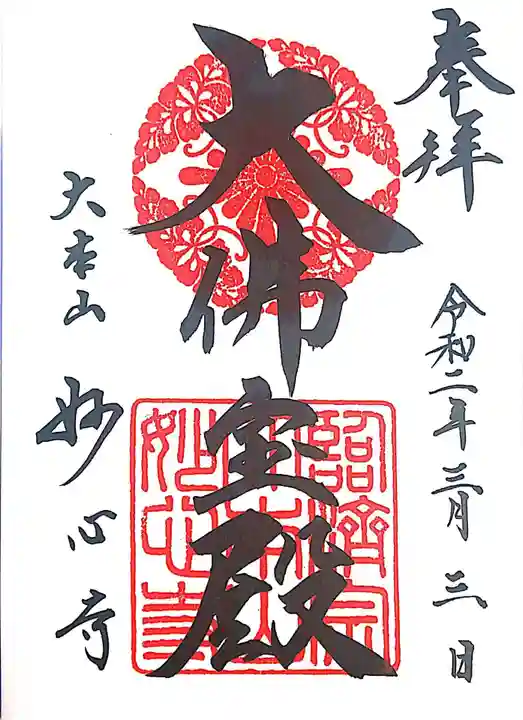 奉拝
令和二年三月三日
大佛宝殿
臨済宗
大本山
妙心寺
大本山 妙心寺